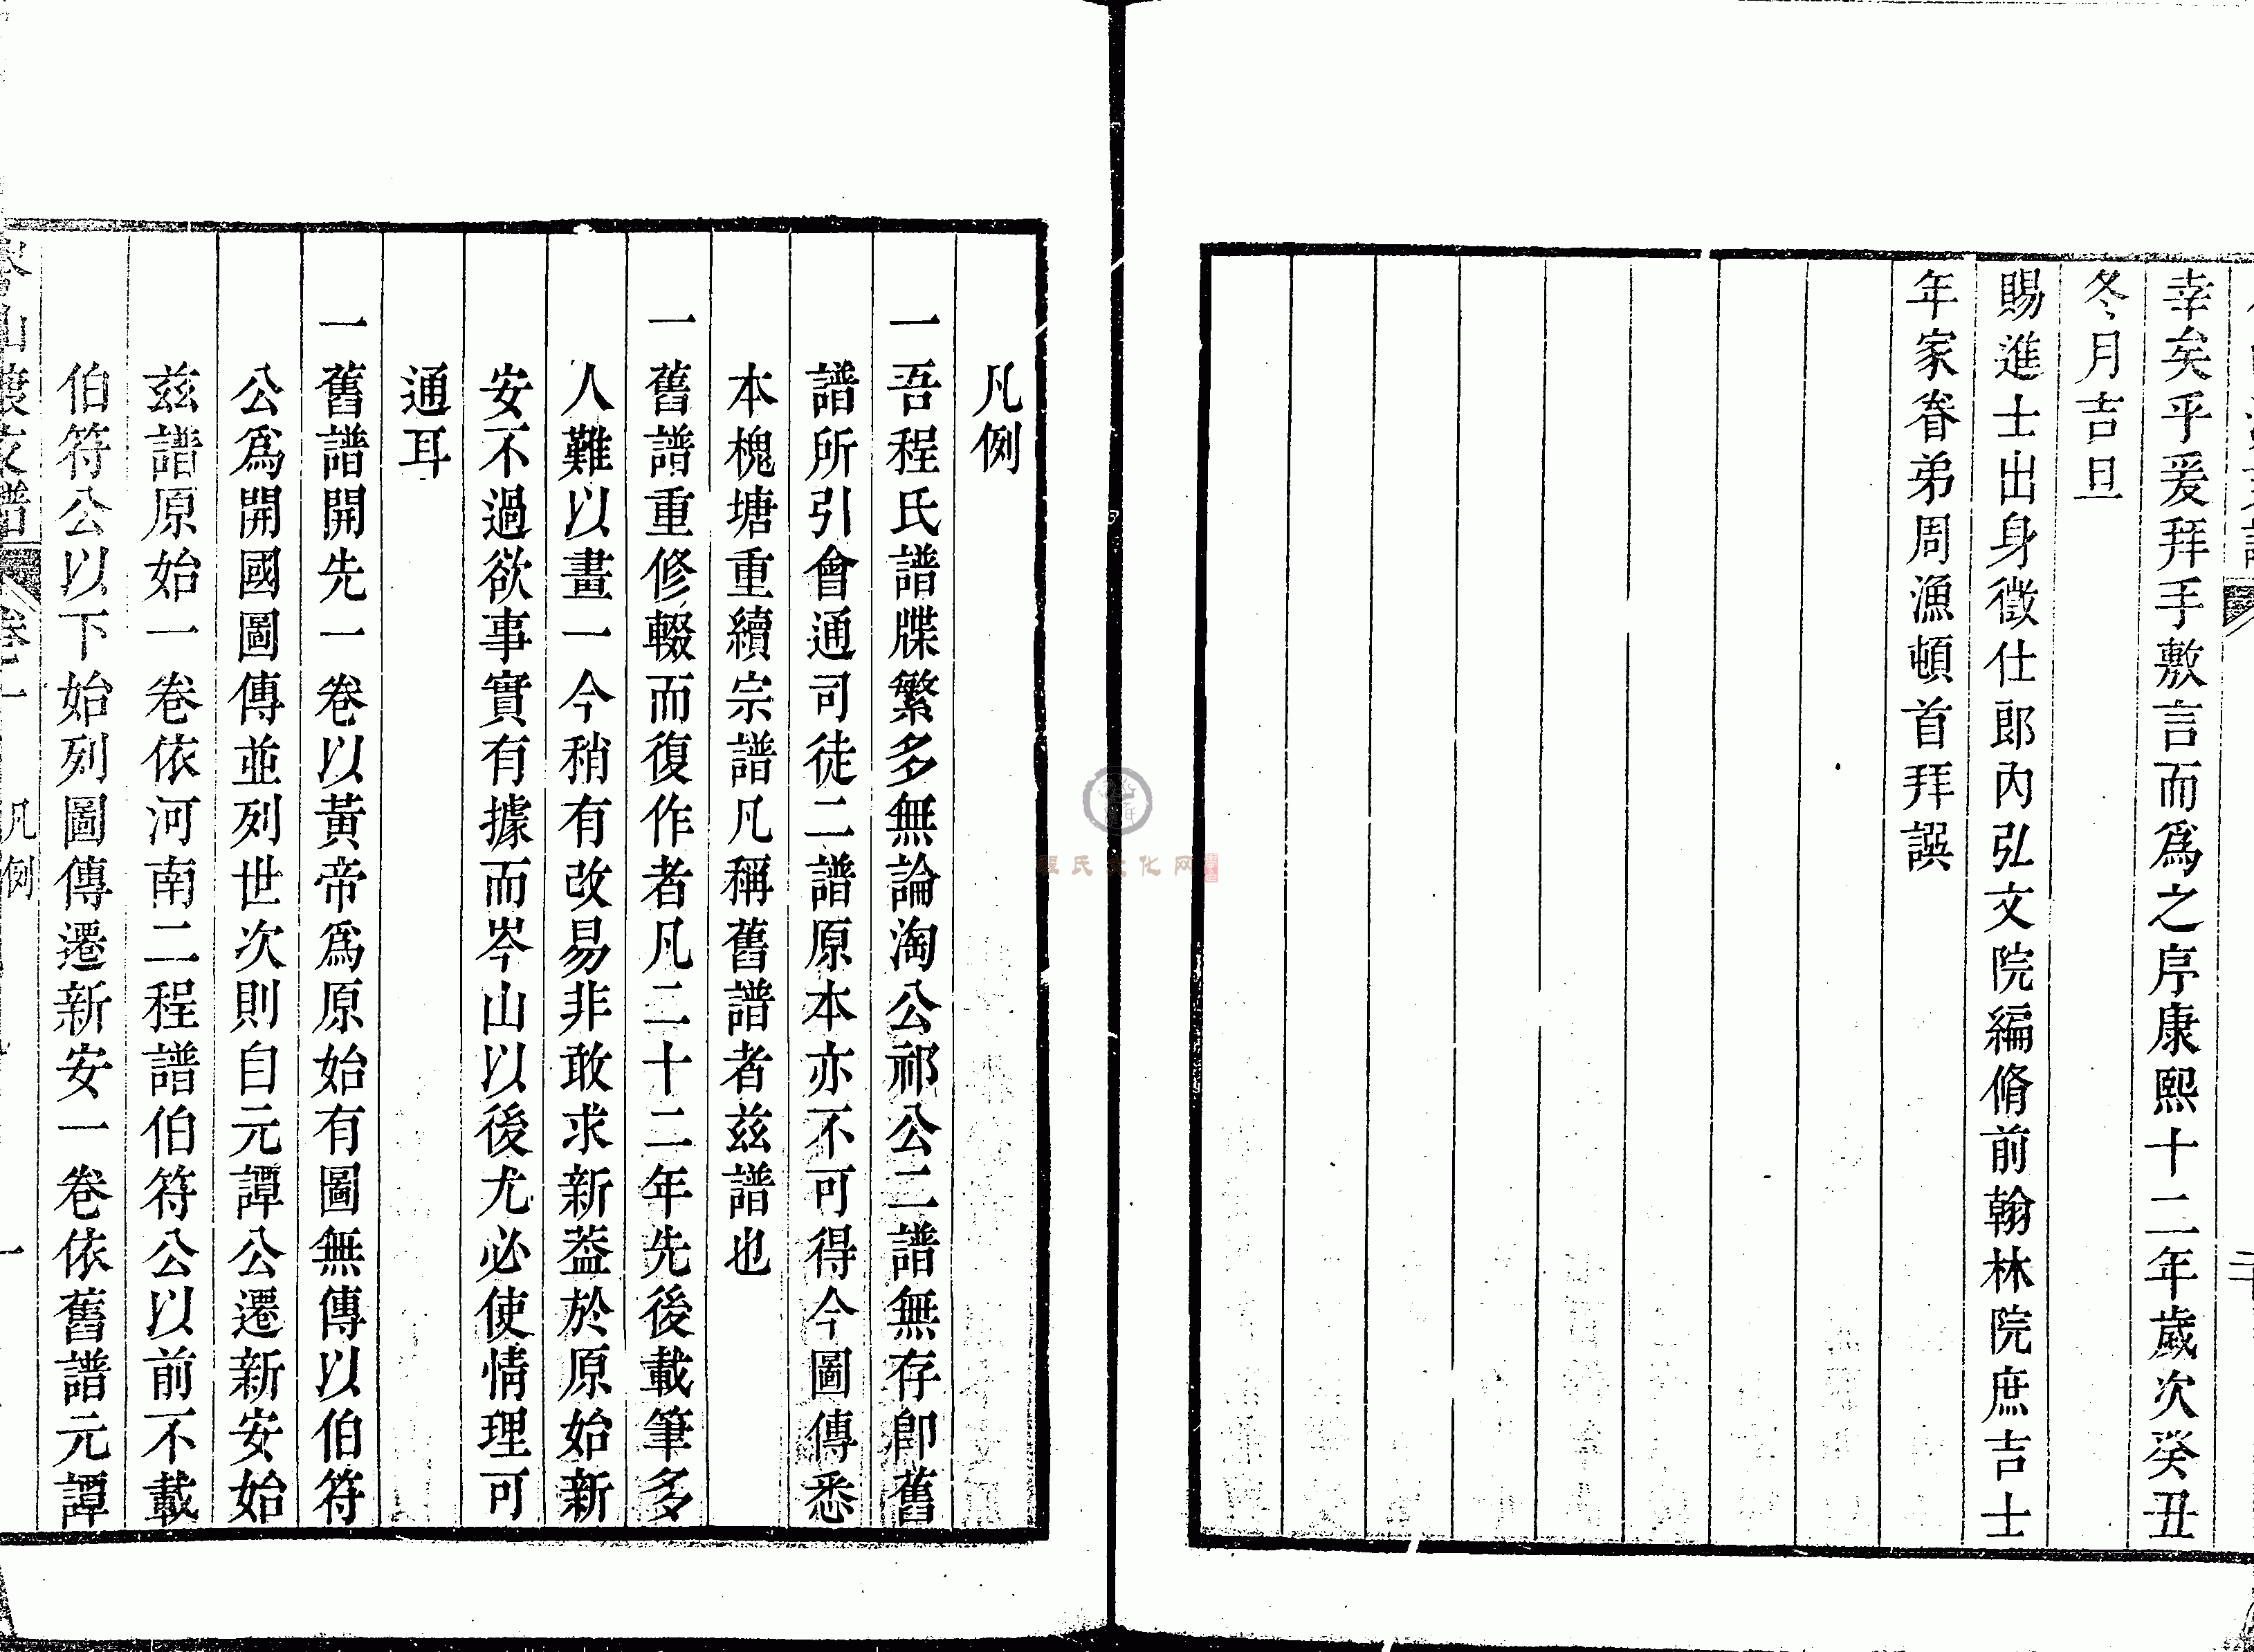 幸矣乎爰拜手敷言而爲之序康熙十二年歲次癸丑
冬月吉旦
賜進士出身徵仕郎內弘文院編脩前翰林院庶吉士
年家眷弟周漁頓首拜譔
凡例
一吾程氏譜牒繁多無論淘公祁公二譜無存卽舊
譜所引會通司徒二譜原本亦不可得今圖傳悉
本槐塘重續宗譜凡稱舊譜者茲譜也
一舊譜重修輟而復作者凡二十二年先後載筆多
人難以畫一今稍有改易非敢求新葢於原始新
安不過欲事實有據而岑山以後尤必使情理可
通耳
一舊譜開先一卷以黃帝爲原始有圖無傳以伯符
公爲開國圖傳並列世次則自元譚公遷新安始
茲譜原始一卷依河南二程譜伯符公以前不載
伯符公以下始列圖傳遷新安一卷依舊譜元譚
凡例
一
程氏文化网